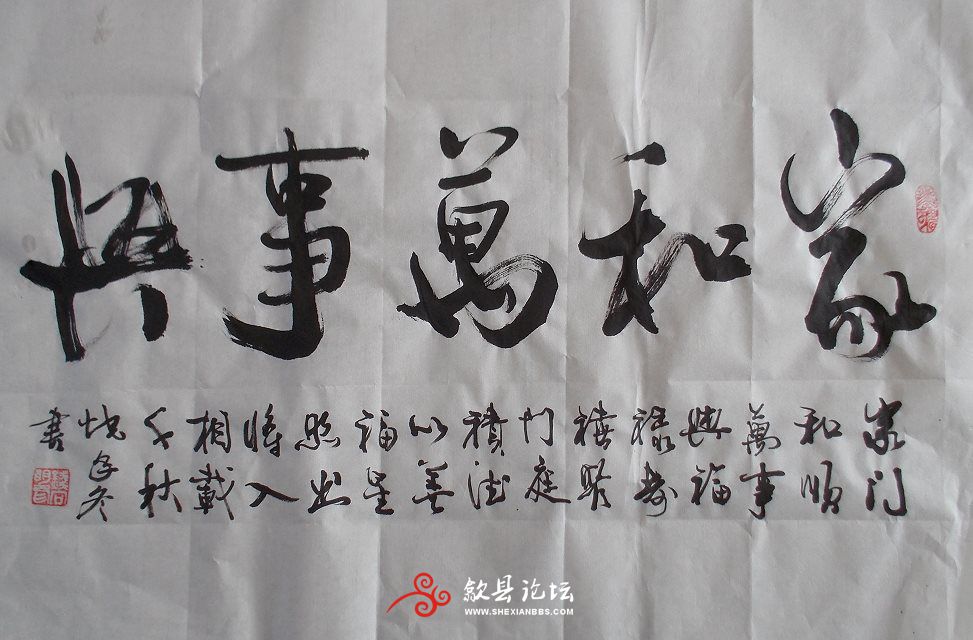 家和萬事興
家门
和順
萬事
興福
禄壽
禧
門庭
積德
以善
福星
照出
將入
相載
千秋
冬
書
歙县论坛
WWW.SHEXIANBBS.COM